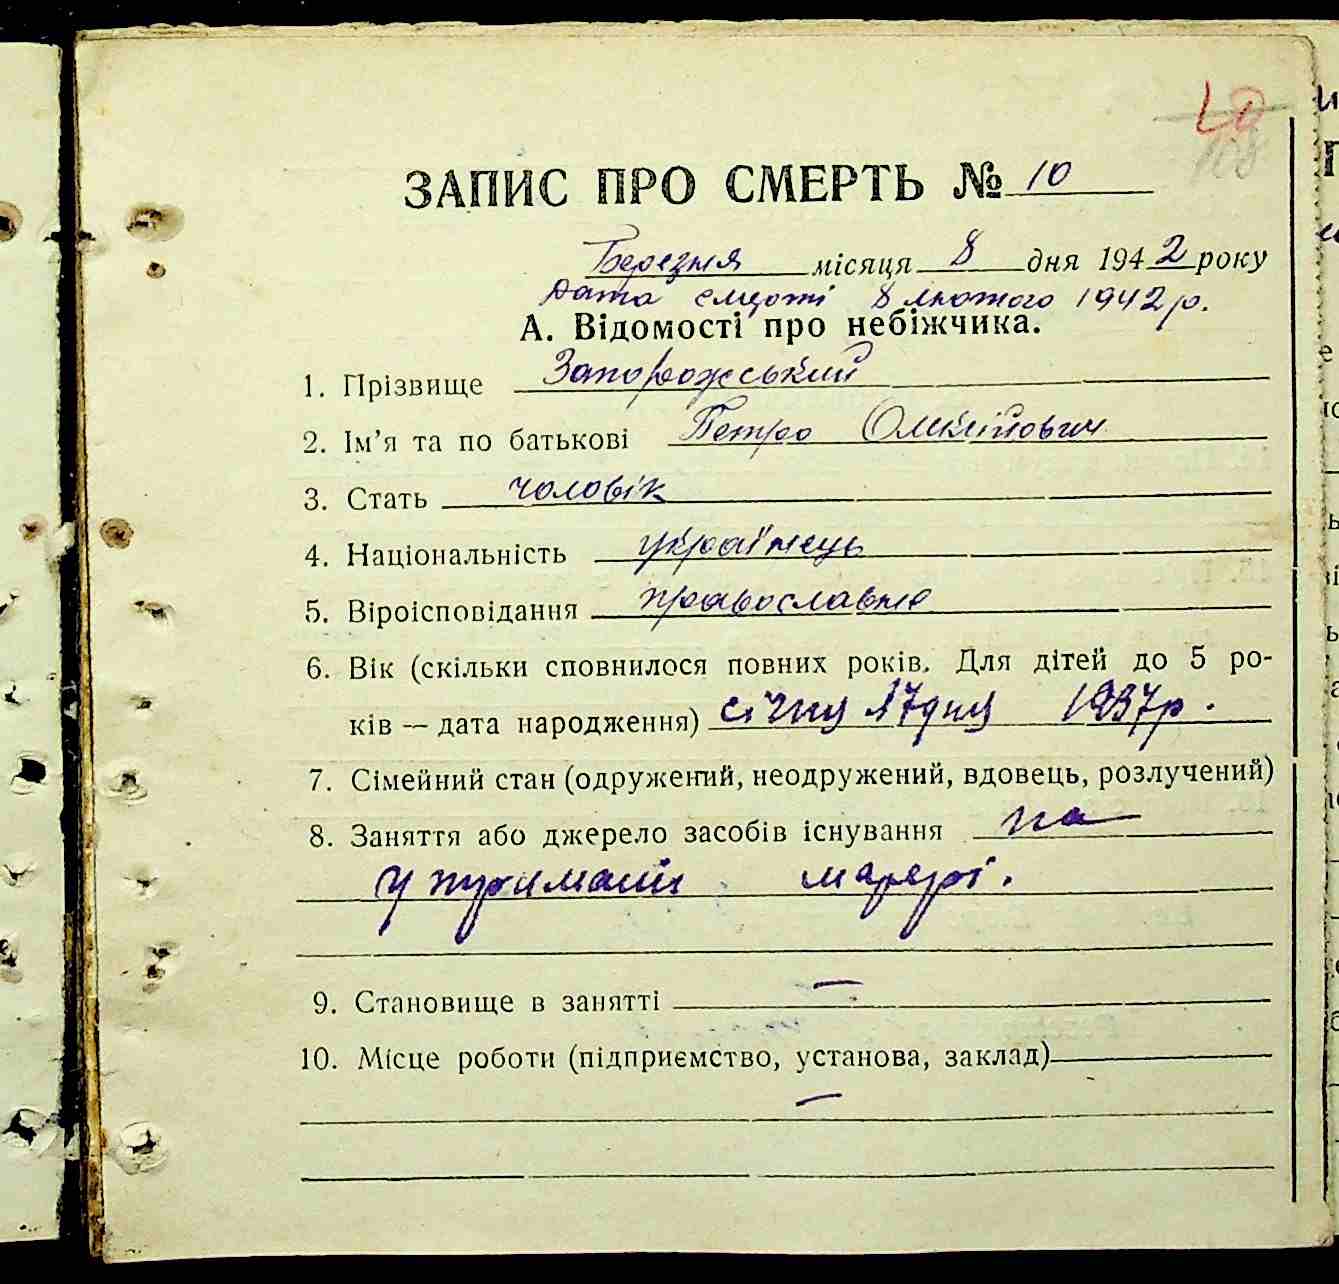 ЗАПИС ПРО СМЕРТЬ № 10
Березня місяця 8 дня 1942 року
Дата смерті 8 лютого 1942 р.
А. Відомості про небіжчика.
1. Прізвище Запорожський
2. Ім'я та по батькові Петро
3. Стать чоловік
4. Національність українець
5. Віроісповідання православне
6. Вік (скільки сповнилося повних років. Для дітей до 5 ро-
ків — дата народження) січня 17 дня 1937 р.
7. Сімейний стан (одружений, неодружений, вдовець, розлучений)
8. Заняття або джерело засобів існування на
матері.
9. Становище в занятті —
10. Місце роботи (підприємство, установа, заклад)
—